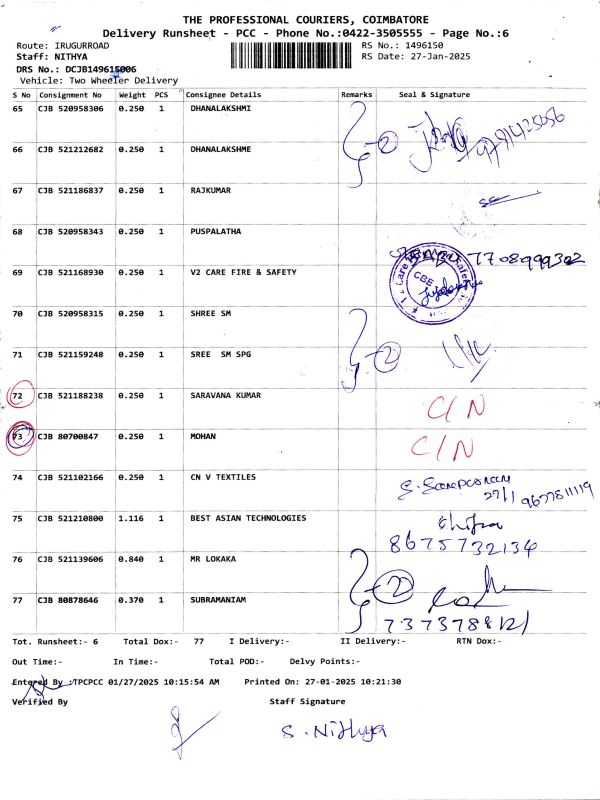 THE PROFESSIONAL COURIERS, COIMBATORE
Delivery Runsheet - PCC - Phone No.:0422-3505555 - Page No.:6
Route: IRUGURROAD RS No.: 1496150
Staff: NITHYA RS Date: 27-Jan-2025
DRS No.: DCJB149615006
Vehicle: Two Wheeler Delivery
S No Consignment No Weight PCS Consignee Details Remarks Seal & Signature
65 CJB 520958306 0.250 1 DHANALAKSHMI
2 9791425056
66 CJB 521212682 0.250 1 DHANALAKSHME
67 CJB 521186837 0.250 1 RAJKUMAR
68 CJB 520958343 0.250 1 PUSPALATHA
7708999302
69 CJB 521168930 0.250 1 V2 CARE FIRE & SAFETY
CBE
70 CJB 520958315 0.250 1 SHREE SM
2
71 CJB 521159248 0.250 1 SREE SM SPG
72 CJB 521188238 0.250 1 SARAVANA KUMAR C/N
73 CJB 80700847 0.250 1 MOHAN C/N
74 CJB 521102166 0.250 1 CN V TEXTILES
27/1 9677811119
75 CJB 521210800 1.116 1 BEST ASIAN TECHNOLOGIES
8675732134
76 CJB 521139606 0.840 1 MR LOKAKA
2
77 CJB 80878646 0.370 1 SUBRAMANIAM
7373788121
Tot. Runsheet:- 6 Total Dox:- 77 I Delivery:- II Delivery:- RTN Dox:-
Out Time:- In Time:- Total POD:- Delvy Points:-
Entered By :TPCPCC 01/27/2025 10:15:54 AM Printed On: 27-01-2025 10:21:30
Verified By Staff Signature
S. Nithya